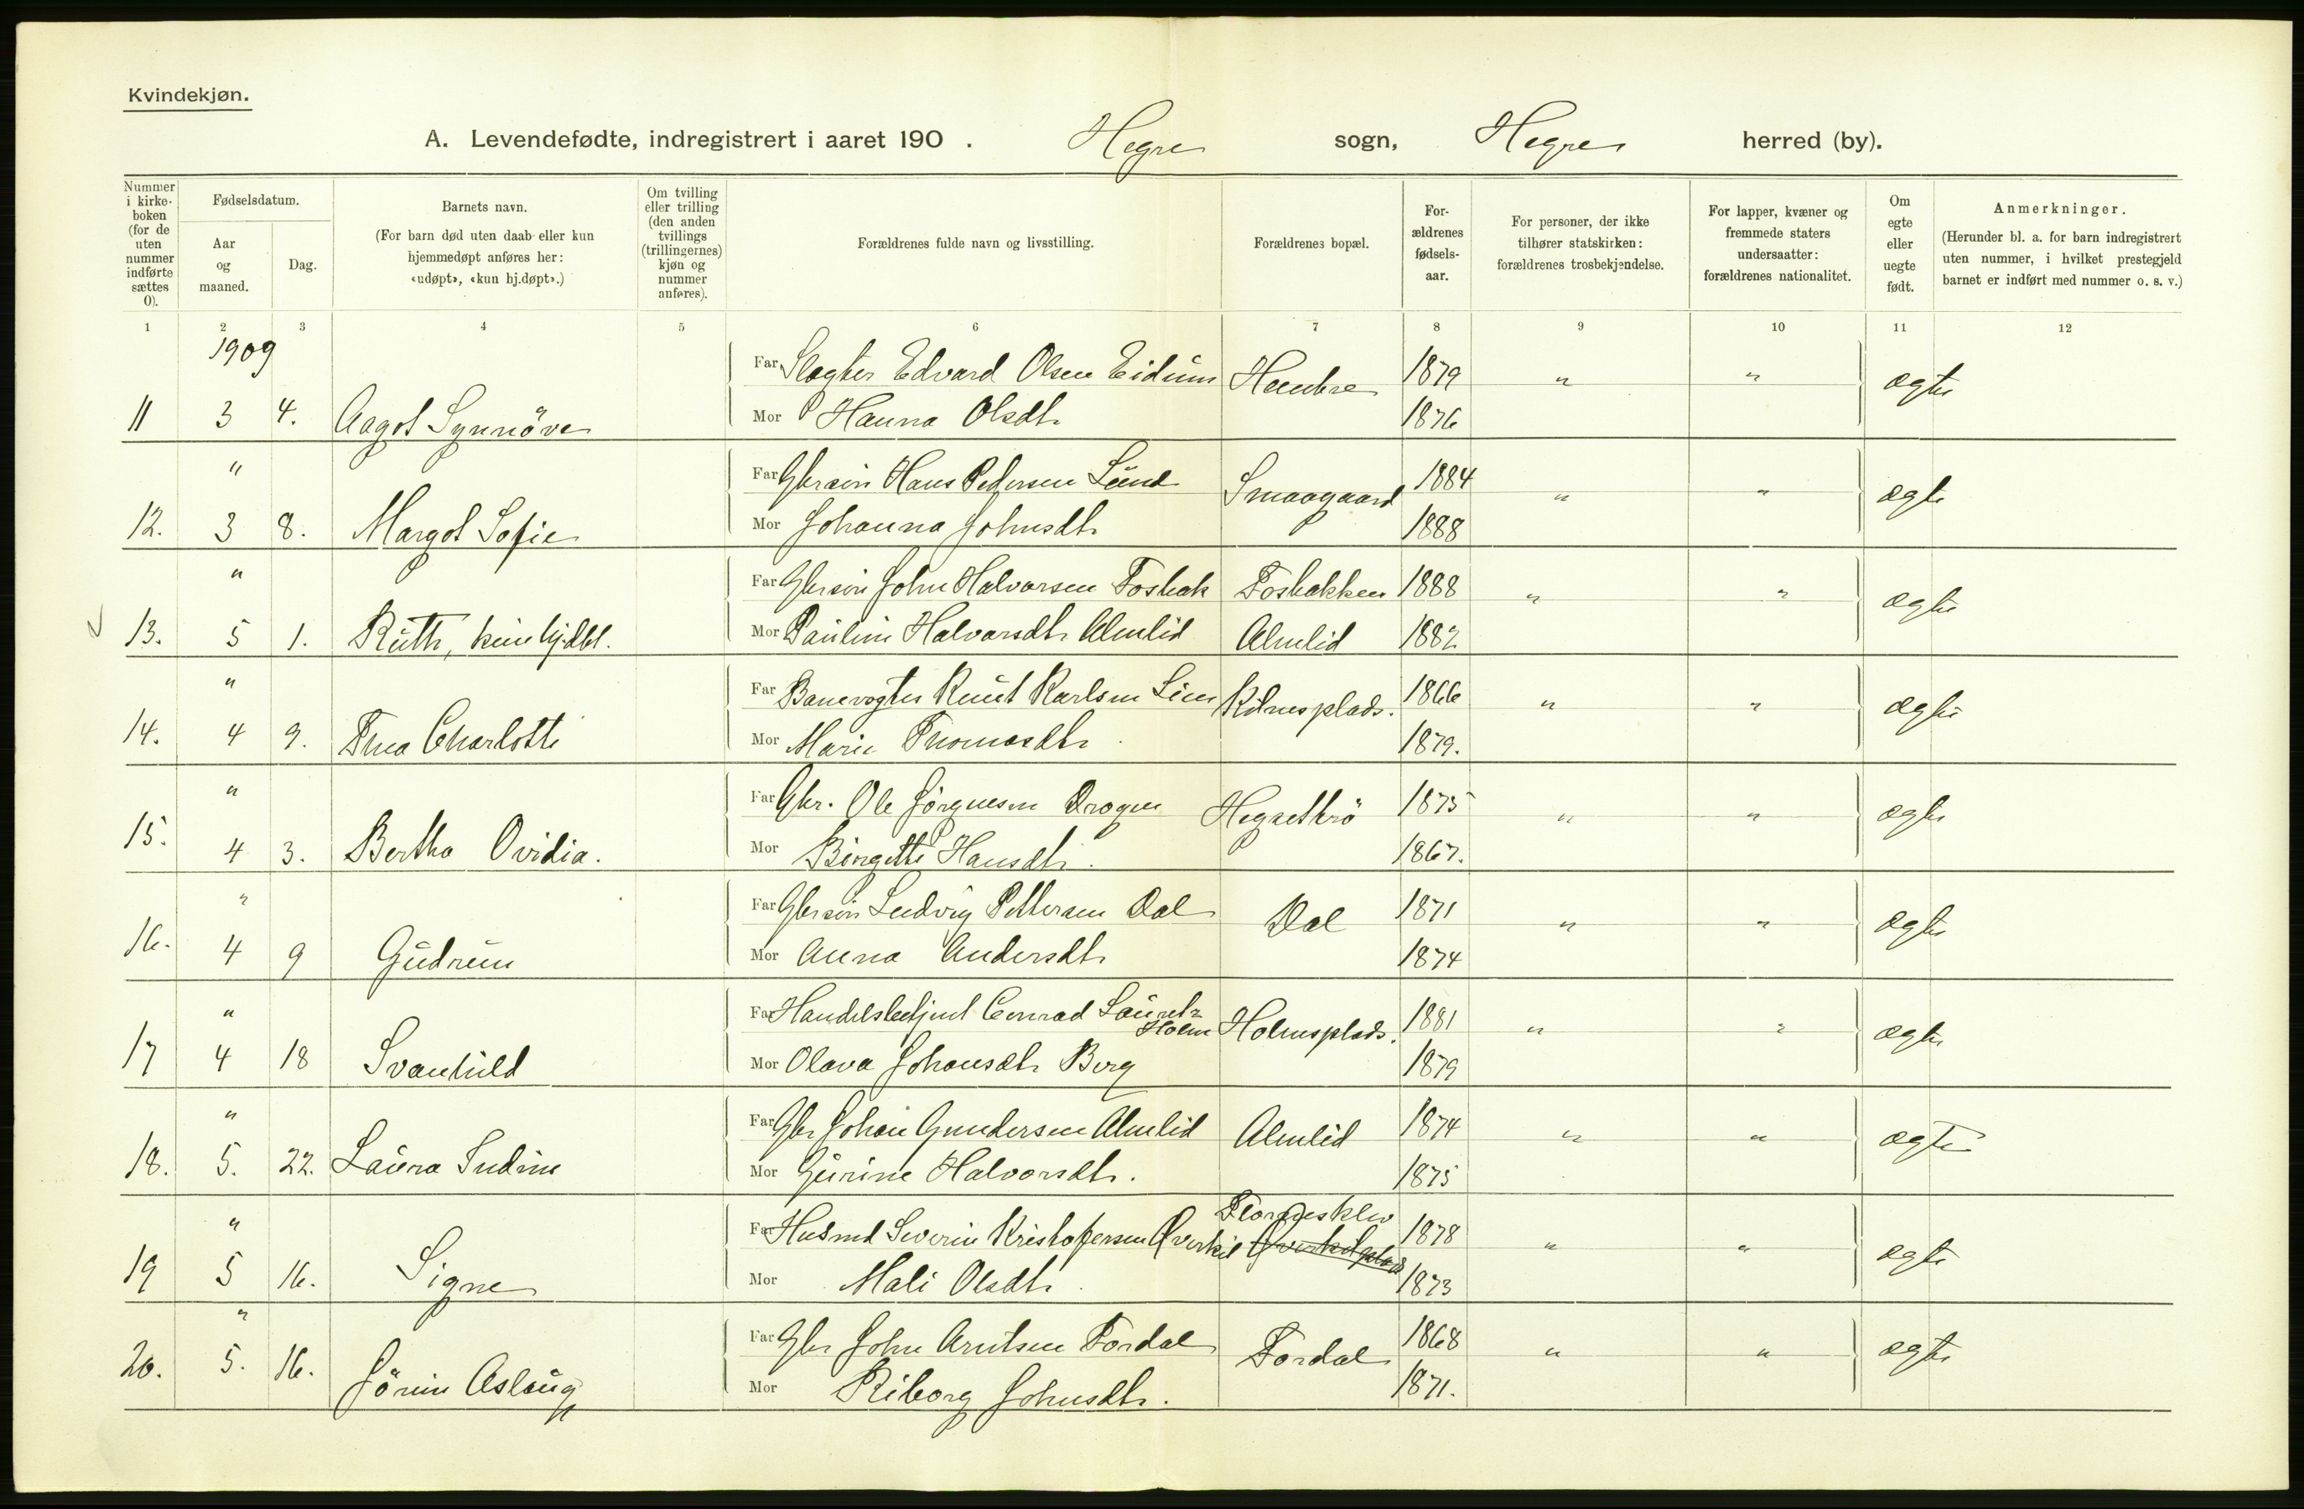 Kvindekjøn.
A. Levendefødte, indregistrert i aaret 190 . Hegre sogn, Hegre herred (by).
Nummer i kirke-boken (for de uten nummer indførte sættes 0).
Fødselsdatum.
Aar og maaned.
Dag.
Barnets navn.
(For barn død uten daab eller kun hjemmedøpt anføres her: «udøpt», «kun hj.døpt».)
Om tvilling eller trilling (den anden tvillings (trillingernes) kjøn og nummer anføres).
Forældrenes fulde navn og livsstilling.
Forældrenes bopæl.
For-ældrenes fødsels-aar.
For personer, der ikke tilhører statskirken: forældrenes trosbekjendelse.
For lapper, kvæner og fremmede staters undersaatter: forældrenes nationalitet.
Om egte eller uegte født.
Anmerkninger.
(Herunder bl. a. for barn indregistrert uten nummer, i hvilket prestegjeld barnet er indført med nummer o. s. v.)
1 2 3 4 5 6 7 8 9 10 11 12
1909
Far Slagter Edvard Olsen Eidum Hembre 1879 " " ægte
11 3 4. Aagot Synnöve Mor Hanna Olsdtr 1876
" Far Gbrsön Hans Pedersen Lund Smaagaard 1884 " " ægte
12. 3 8. Margot Sofie Mor Johanna Johnsdtr 1888
" Far Gbrsön John Halvorsen Fosbak Fosbakken 1888 " " ægte
13. 5 1. Ruth, kun hj.dbt. Mor Pauline Halvorsdtr Almlid Almlid 1882
" Far Banevogter Knut Karlsen Lien Kilnesplads. 1866 " " ægte
14. 4 9. Tina Charlotte Mor Marie Thomasdtr. 1879.
" Far Gbr. Ole Jörgensen Drogen Hegrethrö 1875 " " ægte
15. 4 3. Bertha Ovidia. Mor Birgitte Hansdtr. 1867.
" Far Gbrsön Ludvig Pettersen Dal Dal 1871 " " ægte
16. 4 9 Gudrun Mor Anna Andersdtr 1874
" Far Handelsbetjent Conrad Lauretz Holm Holmsplads. 1881 " " ægte
17 4 18 Svanhild Mor Olava Johansdtr Berg 1879
" Far Gbr Johan Gundersen Almlid Almlid 1874 " " ægte
18. 5. 22. Laura Indine Mor Gurine Halvorsdtr. 1875
" Far Husmd Severin Kristofersen Øverkil Floraesklev Øverkilplads 1878 " " ægte
19 5 16. Signe Mor Mali Olsdtr. 1873
" Far Gbr John Arntsen Fordal Fordal 1868 " " ægte
20. 5. 16. Jörun Aslaug Mor Riborg Johnsdtr. 1871.